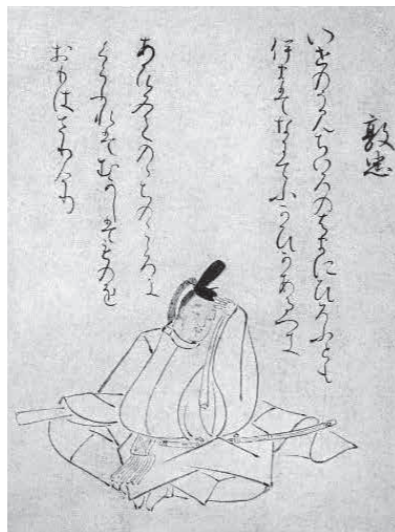 敦忠
いせのうみちひろのはまにひろふとも
いまはなにてふかひかあるへき
あひみてののちのこゝろに
くらふれはむかしはものを
おもはさりけり